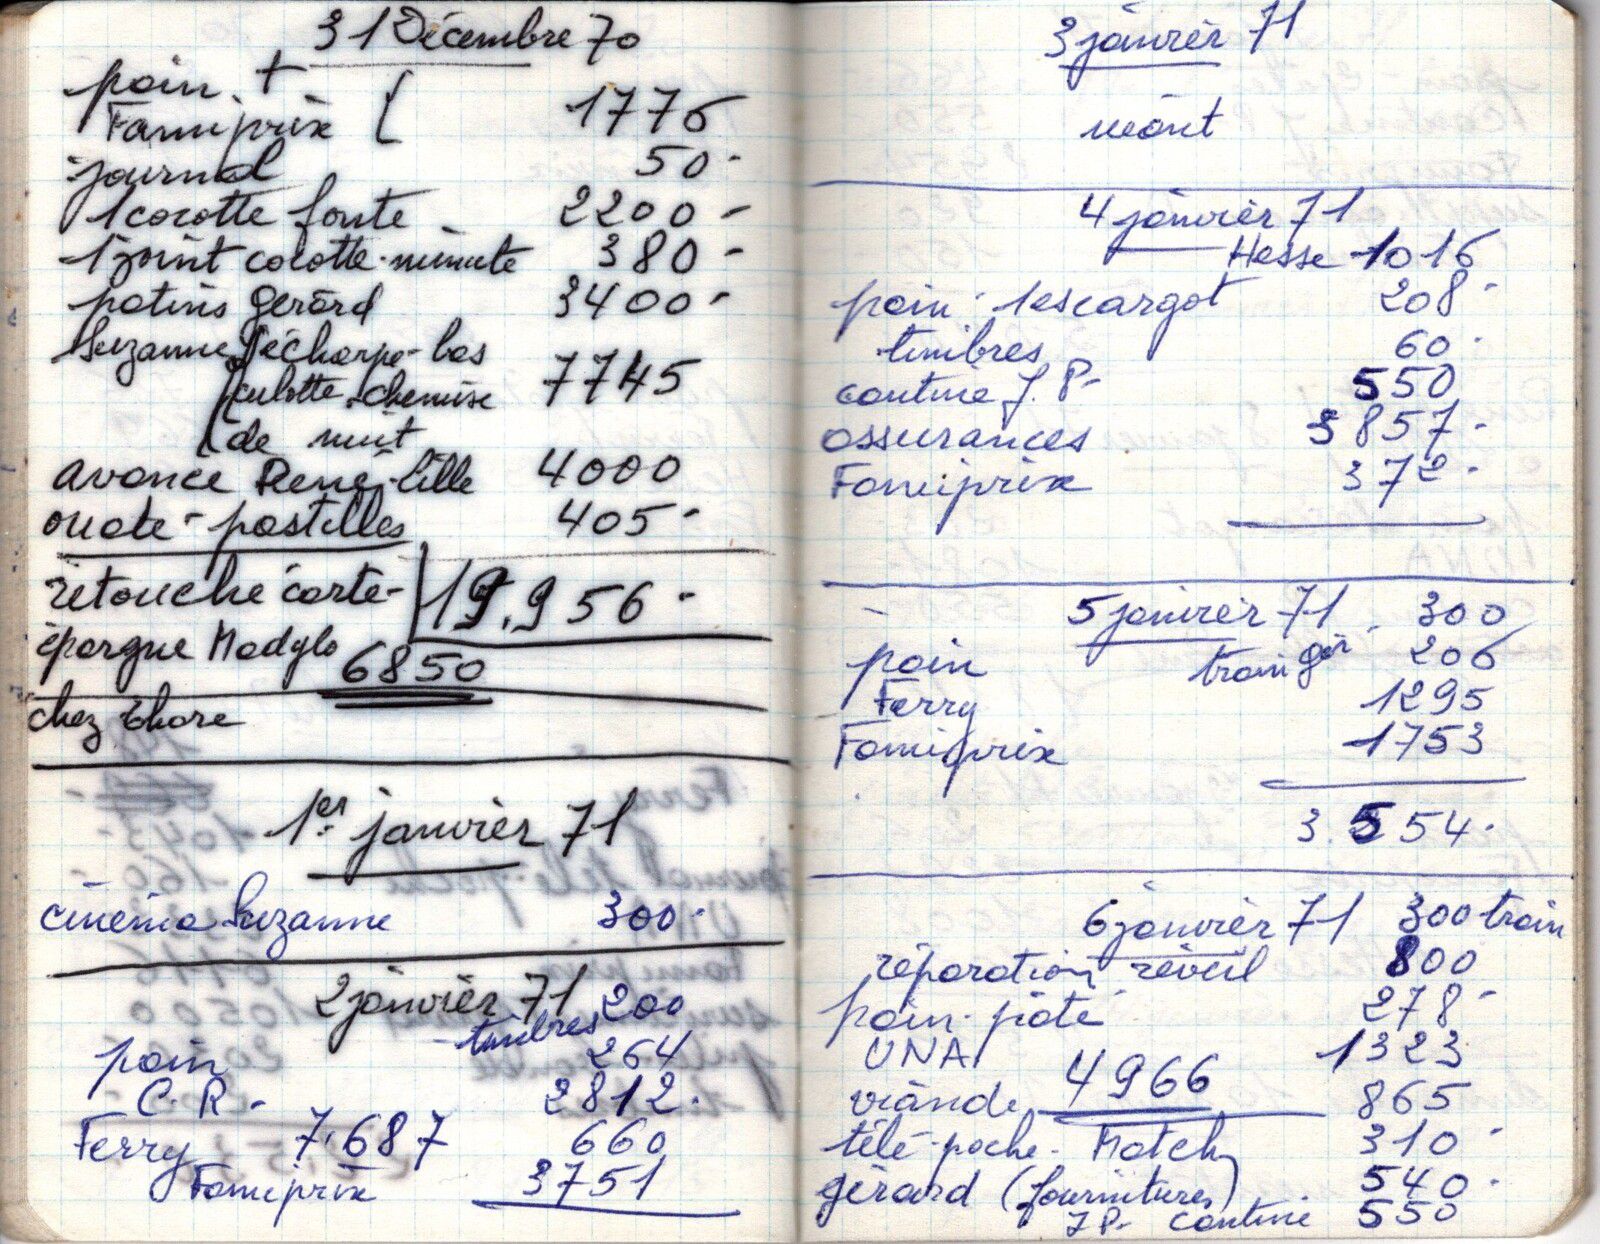 31 Décembre 70
pain +
Famiprix 1776
journal 50-
1 cocotte fonte 2200-
1 joint cocotte-minute 380-
patins Gérard 3400-
Suzanne écharpe-bas
culotte-chemise 7745
de nuit
avance René-Lille 4000
ouate-pastilles 405-
retouche carte- 19.956-
épargne Modylo 6850
chez Thore
1er janvier 71
cinéma Suzanne 300-
2 janvier 71 200
timbres
pain 264
C.R- 2812-
Ferry 7.687 660
Famiprix 3751
3 janvier 71
néant
4 janvier 71
Hesse 1016
pain-1 escargot 208-
timbres 60-
cantine J.P- 550
assurances 3857-
Famiprix 372-
5 janvier 71 - 300
pain train gér 206
Ferry 1295
Famiprix 1753
3.554-
6 janvier 71 300 train
réparation réveil 800
pain-pâté 278-
UNA 1323
4966
viande 865
télé-poche-Match 310-
gérard (fournitures) 540-
J P- cantine 550